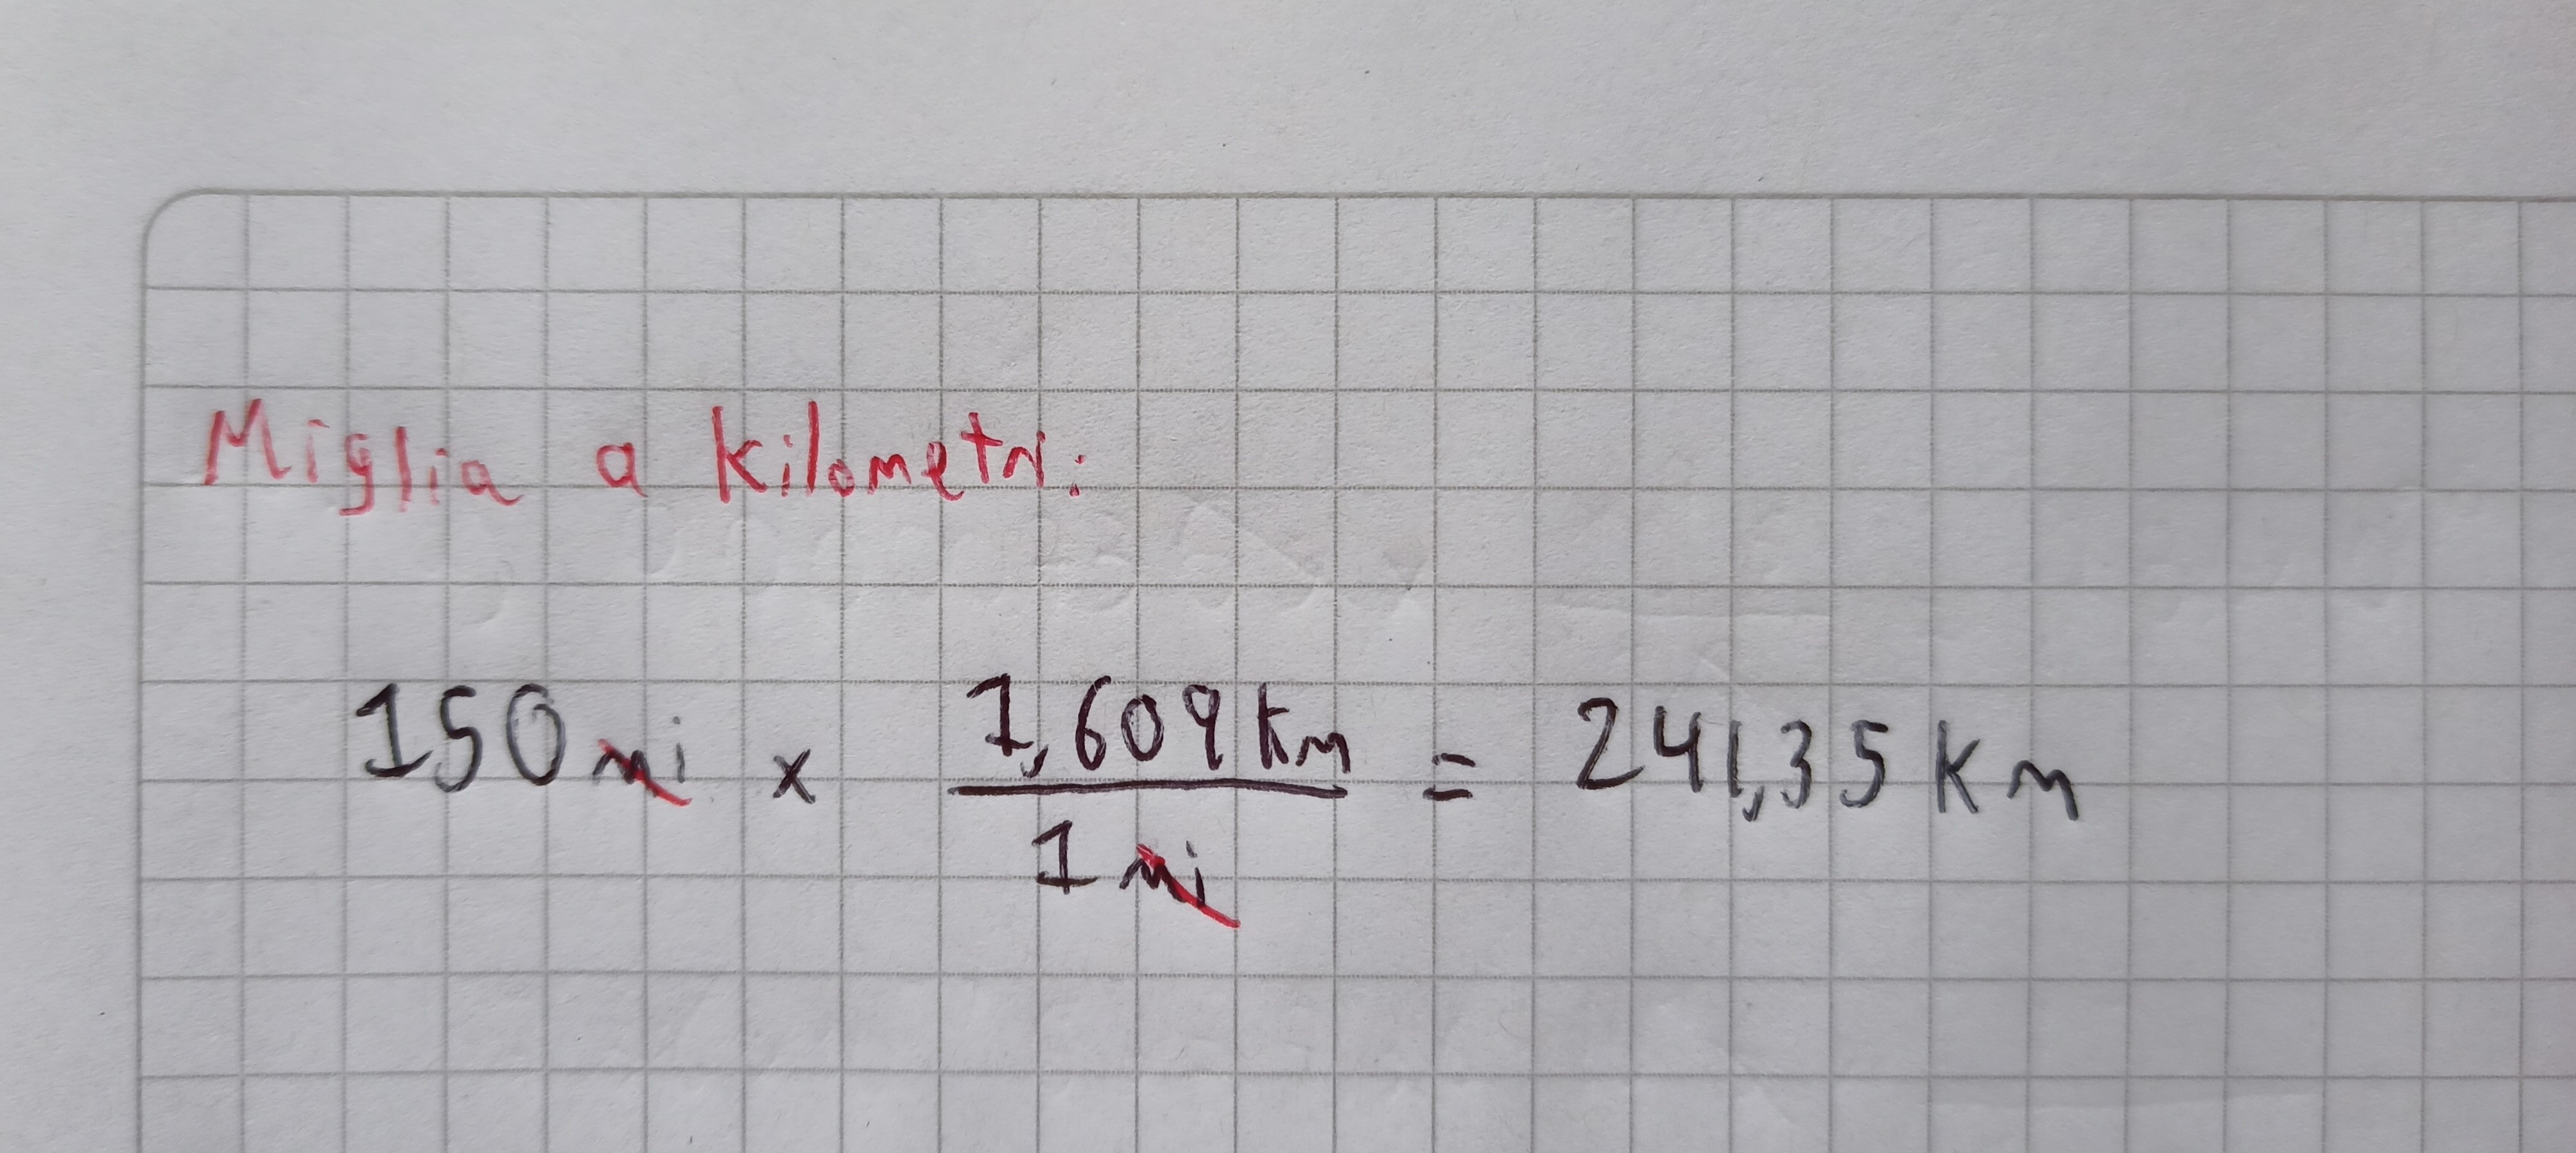 Miglia a kilometri:
150 mi x 1,609 km / 1 mi = 241,35 km